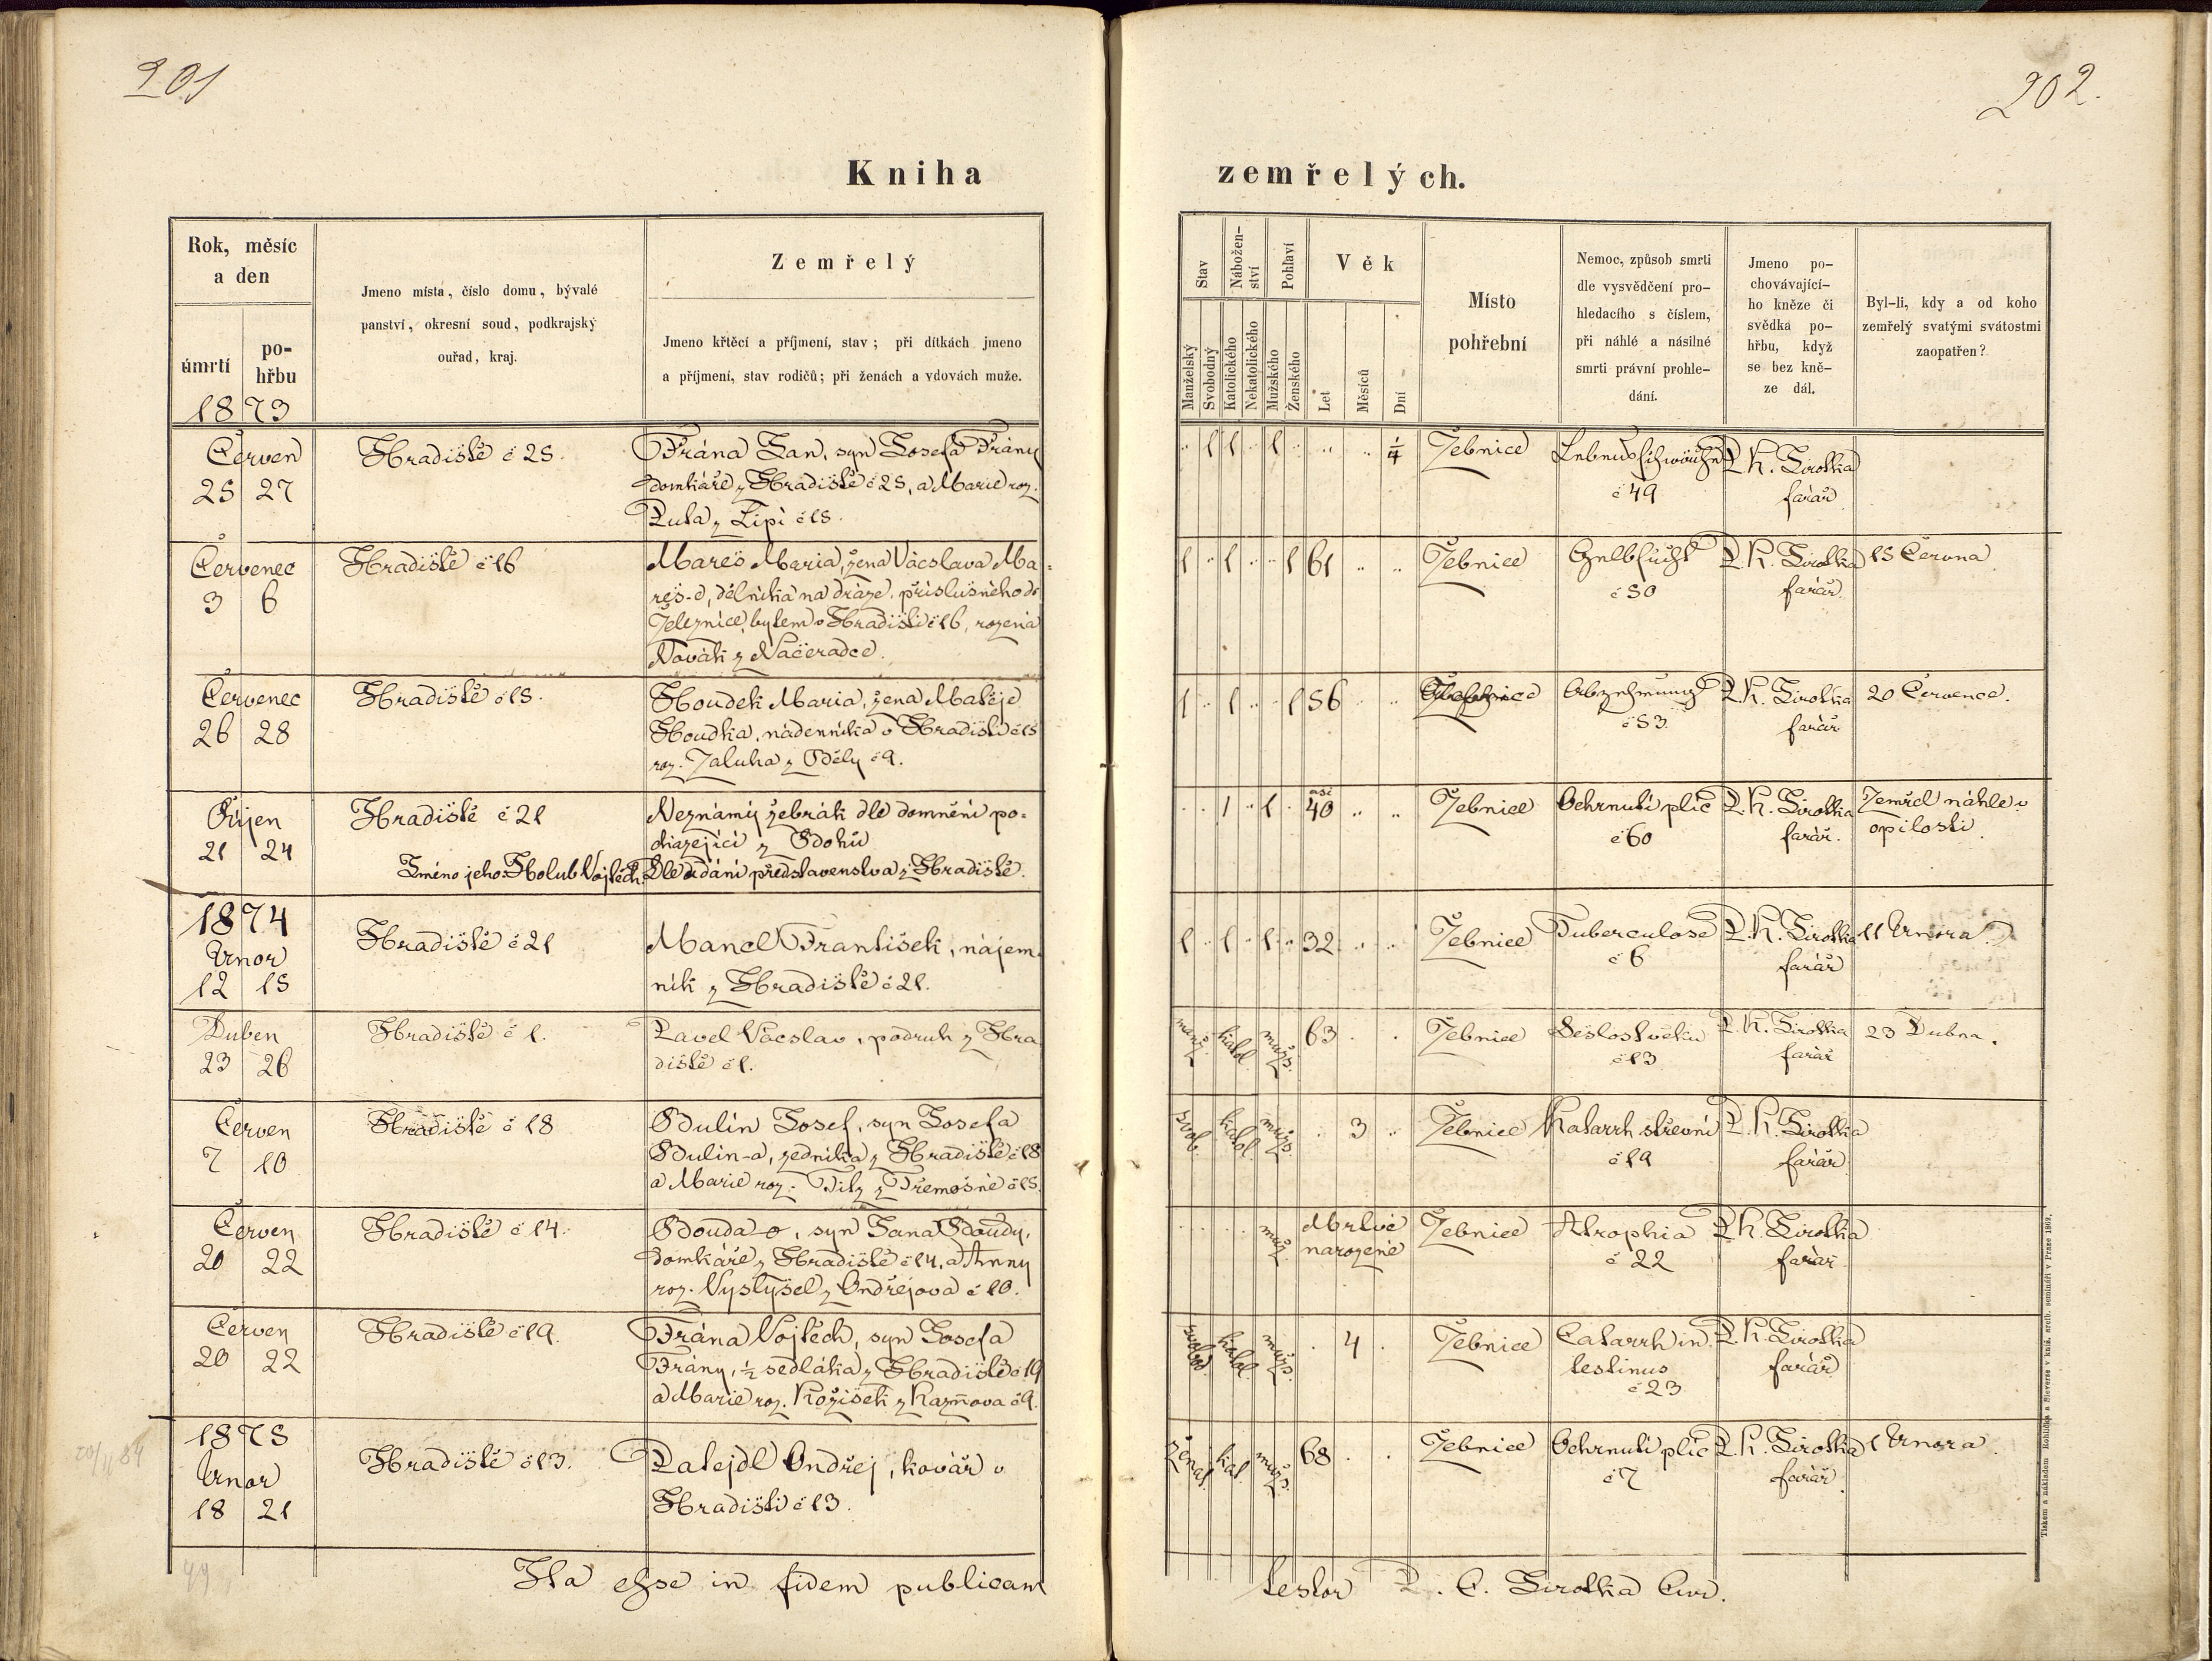 201
202.
Kniha zemřelých.
Rok, měsíc
a den
úmrtí
po-
hřbu
1873
Jmeno místa, číslo domu, bývalé
panství, okresní soud, podkrajský
ouřad, kraj.
Zemřelý
Jmeno křtěcí a příjmení, stav; při dítkách jmeno
a příjmení, stav rodičů; při ženách a vdovách muže.
Stav
Manželský
Svobodný
Nábožen-
ství
Katolického
Nekatolického
Pohlaví
Mužského
Ženského
Věk
Let
Měsíců
Dní
Místo
pohřební
Nemoc, způsob smrti
dle vysvědčení pro-
hledacího s číslem,
při náhlé a násilné
smrti právní prohle-
dání.
Jmeno po-
chovávající-
ho kněze či
svědka po-
hřbu, když
se bez kně-
ze dál.
Byl-li, kdy a od koho
zemřelý svatými svátostmi
zaopatřen?
Červen
25 27
Hradiště č 25.
Frána Jan, syn Josefa Frány
domkáře z Hradiště č 25, a Marie roz.
Puta z Lipí č 15.
1 1 1 1/4
Žebnice
Lebensschwäche
č 49
P. K. Sirotka
farář
Červenec
3 6
Hradiště č 16
Mareš Maria, žena Vácslava Ma-
reš-e, dělníka na dráze, příslušného do
Železnice, bytem v Hradišti č 16, rozená
Novák z Načeradce.
1 1 1 61
Žebnice
Gelbsucht
č 50
P. K. Sirotka
farář.
15 Června.
Červenec
26 28
Hradiště č 15.
Houdek Maria, žena Matěje
Houdka, nádenníka v Hradišti č 15
roz. Zaluha z Běly č 9.
1 1 1 56
Abzehrung
č 53
P. K. Sirotka
farář
20 Července.
Říjen
21 24
Hradiště č 21
Neznámý žebrák dle domnění po-
cházející z Bohů
Jméno jeho: Holub Vojtěch. Dle udání představenstva z Hradiště.
1 1 asi 40
Žebnice
Ochrnutí plic
č 60
P. K. Sirotka
farář.
Zemřel náhle v
opilosti.
1874
Unor
12 15
Hradiště č 21
Mancl František, nájem-
ník z Hradiště č 21.
1 1 1 32
Žebnice
Tuberculose
č 6
P. K. Sirotka
farář
11 Unora.
Duben
23 26
Hradiště č 1.
Pavel Vácslav, podruh z Hra
diště č 1.
manž. katol. mužs. 63
Žebnice
Sešlost věku
č 13
P. K. Sirotka
farář
23 Dubna.
Červen
7 10
Hradiště č 18
Bulín Josef, syn Josefa
Bulín-a, zedníka z Hradiště č 18
a Marie roz. Tilz z Třemošné č 15.
svob. katol. mužs. 3
Žebnice
Katarrh střevní
č 19
P. K. Sirotka
farář
Červen
20 22
Hradiště č 14.
Bouda o, syn Jana Boudy,
domkáře z Hradiště č 14, a Anny
roz. Vystyšel z Ondřejova č 10.
muž.
Mrtvě
narozené
Žebnice
Atrophia
č 22
P. K. Sirotka
farář
Červen
20 22
Hradiště č 19.
Frána Vojtěch, syn Josefa
Frány, ½ sedláka z Hradiště č 19
a Marie roz. Kožíšek z Kaznova č 9.
svobod. katol. mužs. 4
Žebnice
Catarrh in-
testinus
č 23
P. K. Sirotka
farář
1875
Unor
18 21
Hradiště č 13.
Patejdl Ondřej, kovář v
Hradišti č 13.
ženat. kat. mužs. 68
Žebnice
Ochrnutí plic
č 7
P. K. Sirotka
farář.
1 Unora.
Ita esse in fidem publicam testor P. C. Sirotka Cur.
Tiskem a nákladem Rohlíčka a Sieverse v kníž. arcib. semináři v Praze 1869.